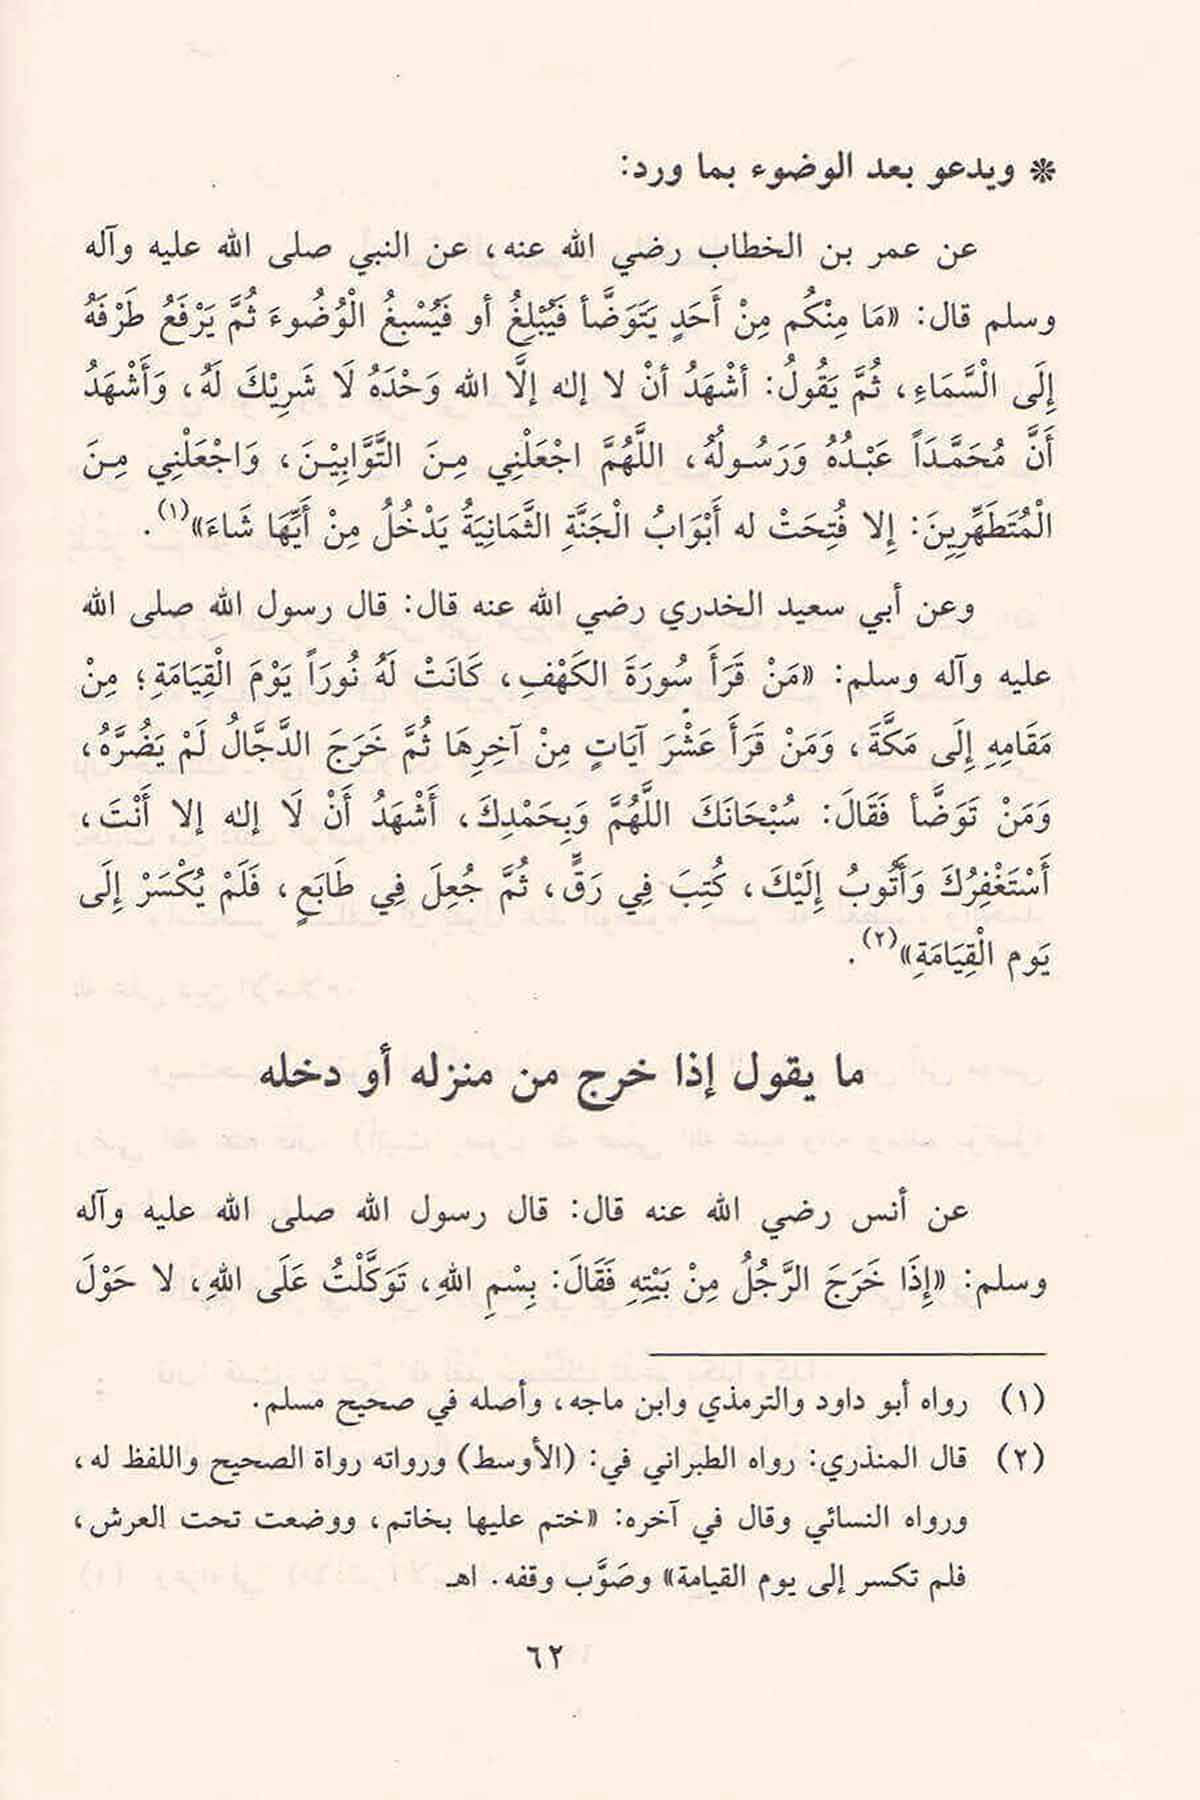 ❊ ويدعو بعد الوضوء بما ورد:
عن عمر بن الخطاب رضي الله عنه، عن النبي صلى الله عليه وآله
وسلم قال: «مَا مِنْكُم مِنْ أَحَدٍ يَتَوَضَّأ فَيُبْلِغُ أو فَيُسْبِغُ الْوُضُوءَ ثُمَّ يَرْفَعُ طَرْفَهُ
إِلَى الْسَّمَاءِ، ثُمَّ يَقُولُ: أشْهَدُ أنْ لا إلٰه إلَّا الله وَحْدَهُ لَا شَرِيْكَ لَهُ، وَأَشْهَدُ
أَنَّ مُحَمَّدَاً عَبْدُهُ وَرَسُولُهُ، اللَّهُمَّ اجْعَلْنِي مِنَ التَّوَّابِيْنَ، وَاجْعَلْنِي مِنَ
الْمُتَطَهِّرِينَ: إِلا فُتِحَتْ له أَبْوَابُ الْجَنَّةِ الثَّمَانِيَةُ يَدْخُلُ مِنْ أَيِّهَا شَاءَ»(١).
وعن أبي سعيد الخدري رضي الله عنه قال: قال رسول الله صلى الله
عليه وآله وسلم: «مَنْ قَرَأَ سُورَةَ الكَهْفِ، كَانَتْ لَهُ نُورَاً يَوْمَ الْقِيَامَةِ؛ مِنْ
مَقَامِهِ إِلَى مَكَّةَ، وَمَنْ قَرَأَ عَشْرَ آيَاتٍ مِنْ آخِرِهَا ثُمَّ خَرَجَ الدَّجَّالُ لَمْ يَضُرَّهُ،
وَمَنْ تَوَضَّأ فَقَالَ: سُبْحَانَكَ اللَّهُمَّ وَبِحَمْدِكَ، أَشْهَدُ أَنْ لَا إلٰه إلا أَنْتَ،
أَسْتَغْفِرُكَ وَأَتُوبُ إِلَيْكَ، كُتِبَ فِي رَقٍّ، ثُمَّ جُعِلَ فِي طَابَعٍ، فَلَمْ يُكْسَرْ إِلَى
يَوم الْقِيَامَةِ»(٢).
ما يقول إذا خرج من منزله أو دخله
عن أنس رضي الله عنه قال: قال رسول الله صلى الله عليه وآله
وسلم: «إِذَا خَرَجَ الرَّجُلُ مِنْ بَيْتِهِ فَقَالَ: بِسْمِ اللهِ، تَوَكَّلْتُ عَلَى اللهِ، لا حَوْلَ
(١) رواه أبو داود والترمذي وابن ماجه، وأصله في صحيح مسلم.
(٢) قال المنذري: رواه الطبراني في: (الأوسط) ورواته رواة الصحيح واللفظ له،
ورواه النسائي وقال في آخره: «ختم عليها بخاتم، ووضعت تحت العرش،
فلم تكسر إلى يوم القيامة» وصَوَّب وقفه. اهـ
٦٢